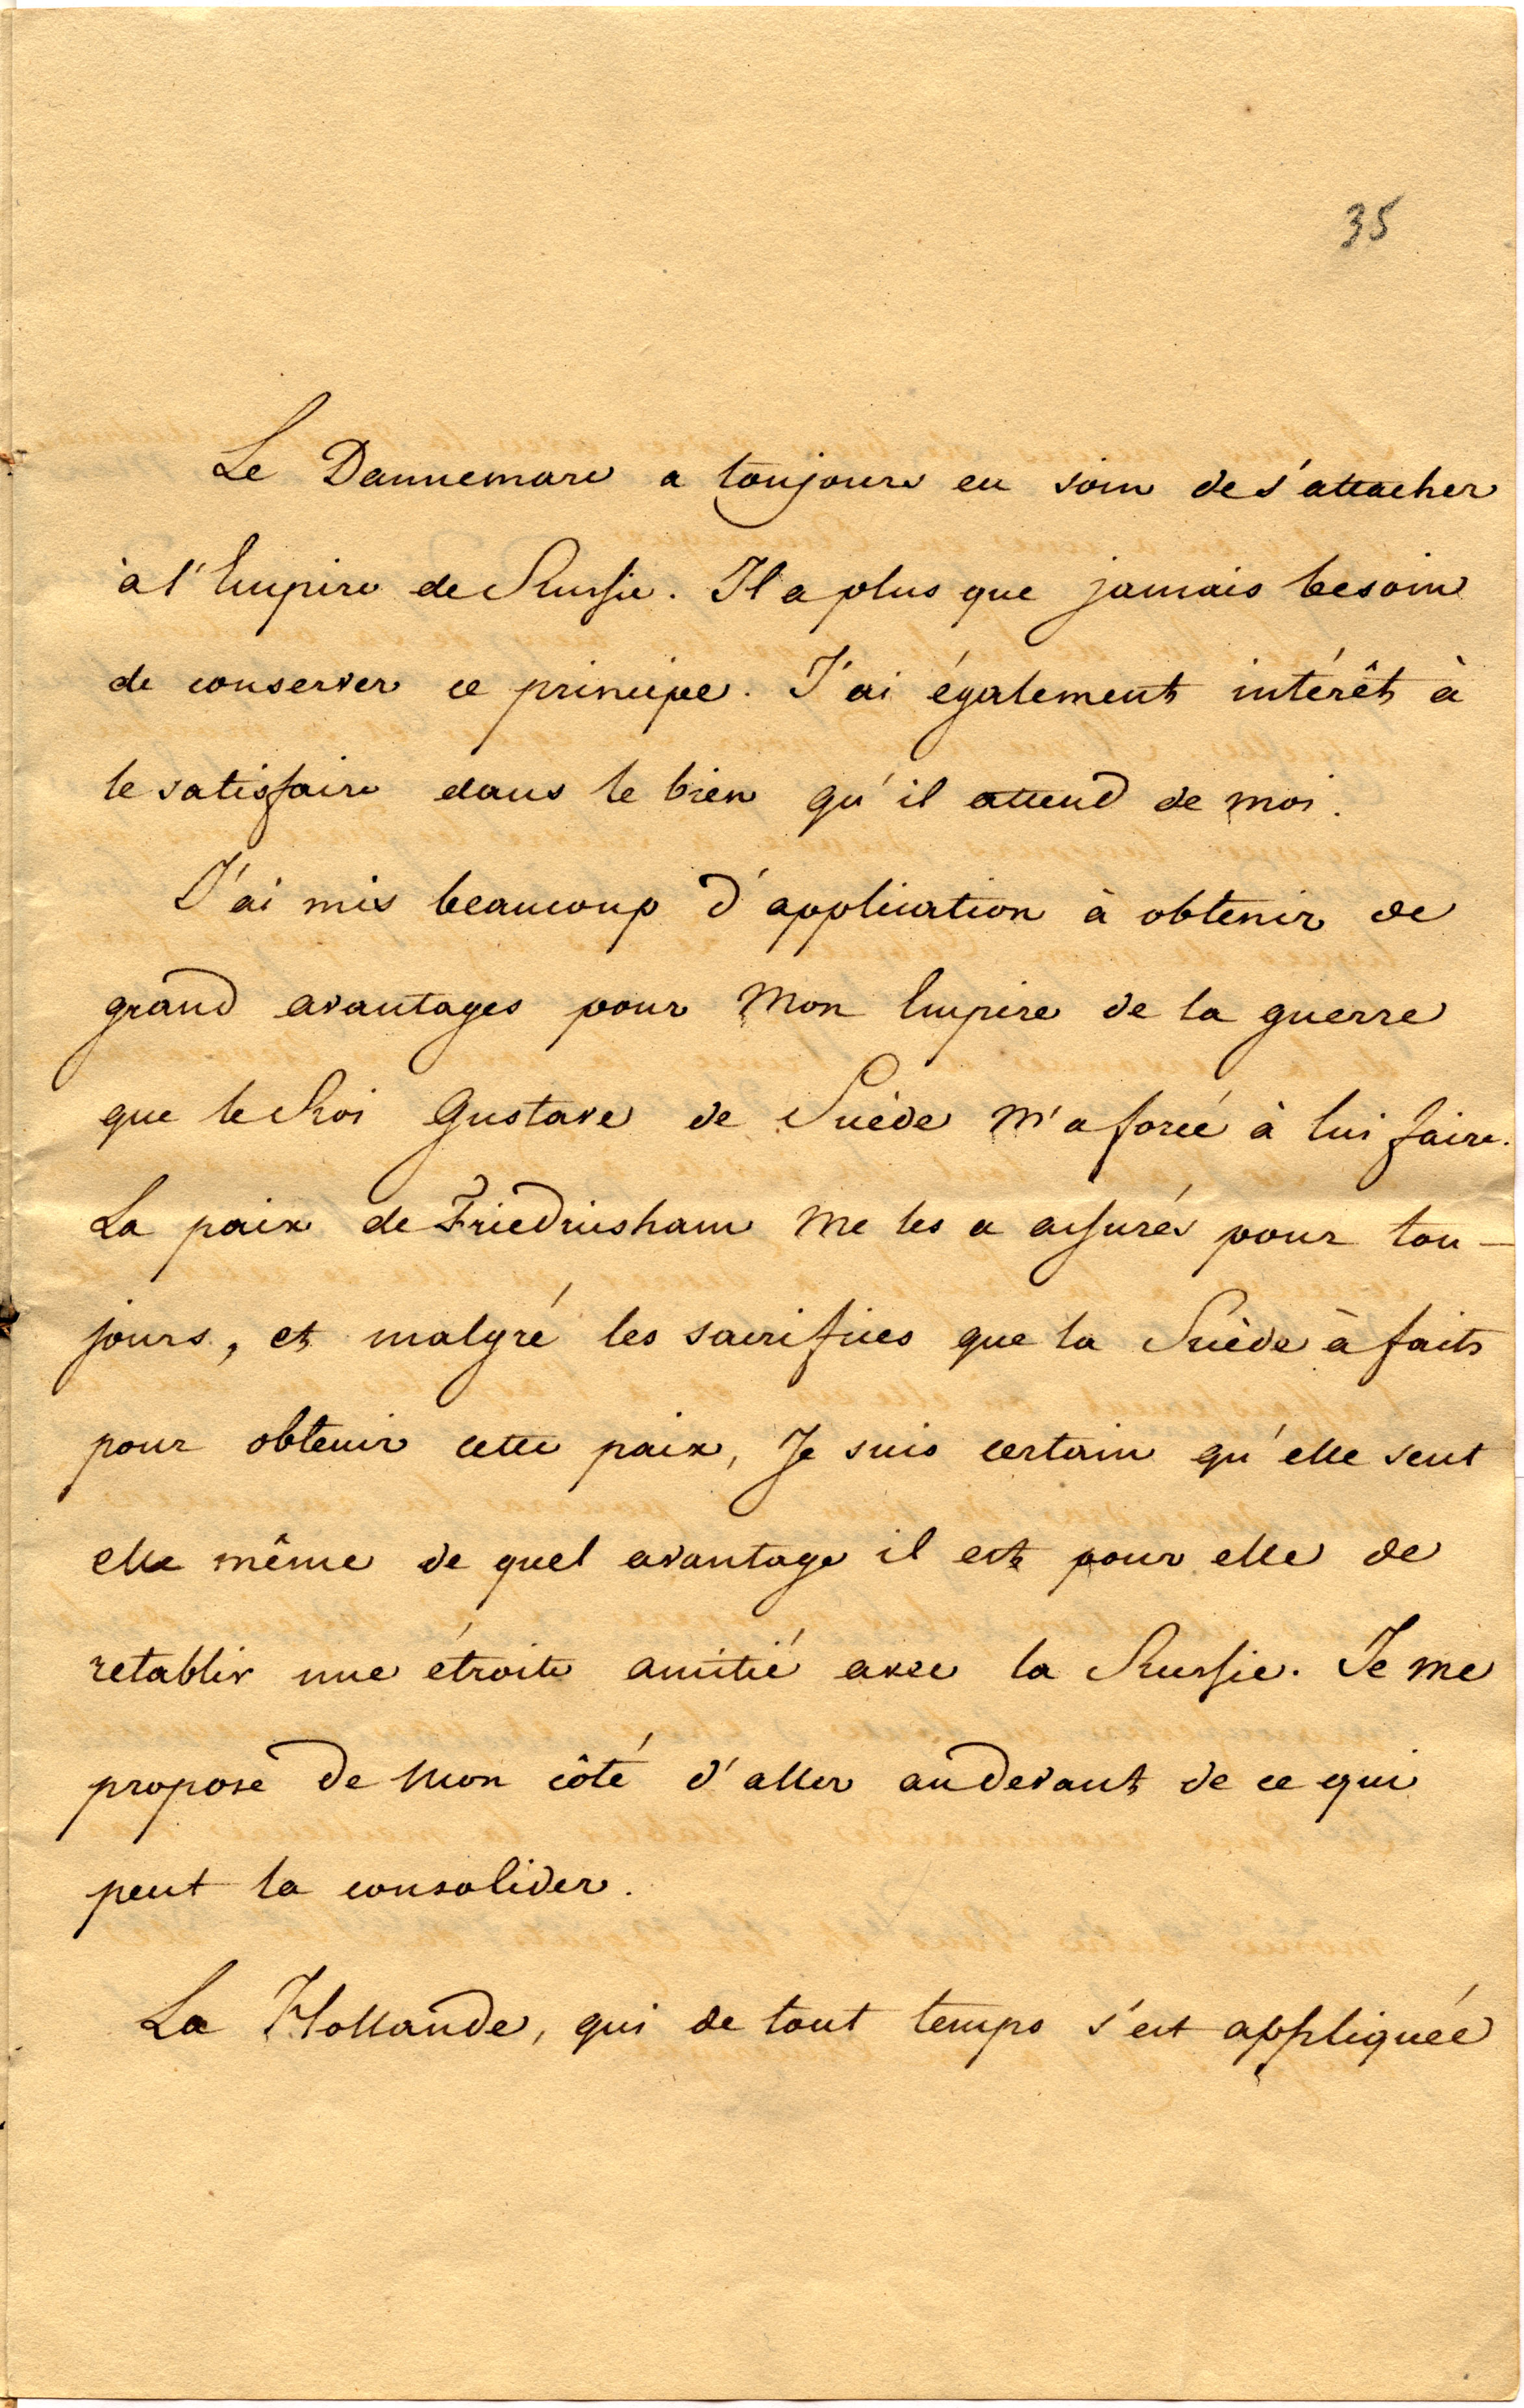 35
Le Dannemarc a toujours eu soin de s'attacher
à l'Empire de Russie. Il a plus que jamais besoin
de conserver ce principe. J'ai également intérêt à
le satisfaire dans le bien qu'il attend de moi.
J'ai mis beaucoup d'application à obtenir de
grand avantages pour Mon Empire de la guerre
que le Roi Gustave de Suède M'a forcé à lui faire.
La paix de Friedrichsham Me les a assurés pour tou-
jours, et malgré les sacrifices que la Suède à faits
pour obtenir cette paix, Je suis certain qu'elle sent
elle même de quel avantage il est pour elle de
retablir une étroite amitié avec la Russie. Je me
propose de Mon côté d'aller audevant de ce qui
peut la consolider.
La Hollande, qui de tout temps s'est appliquée